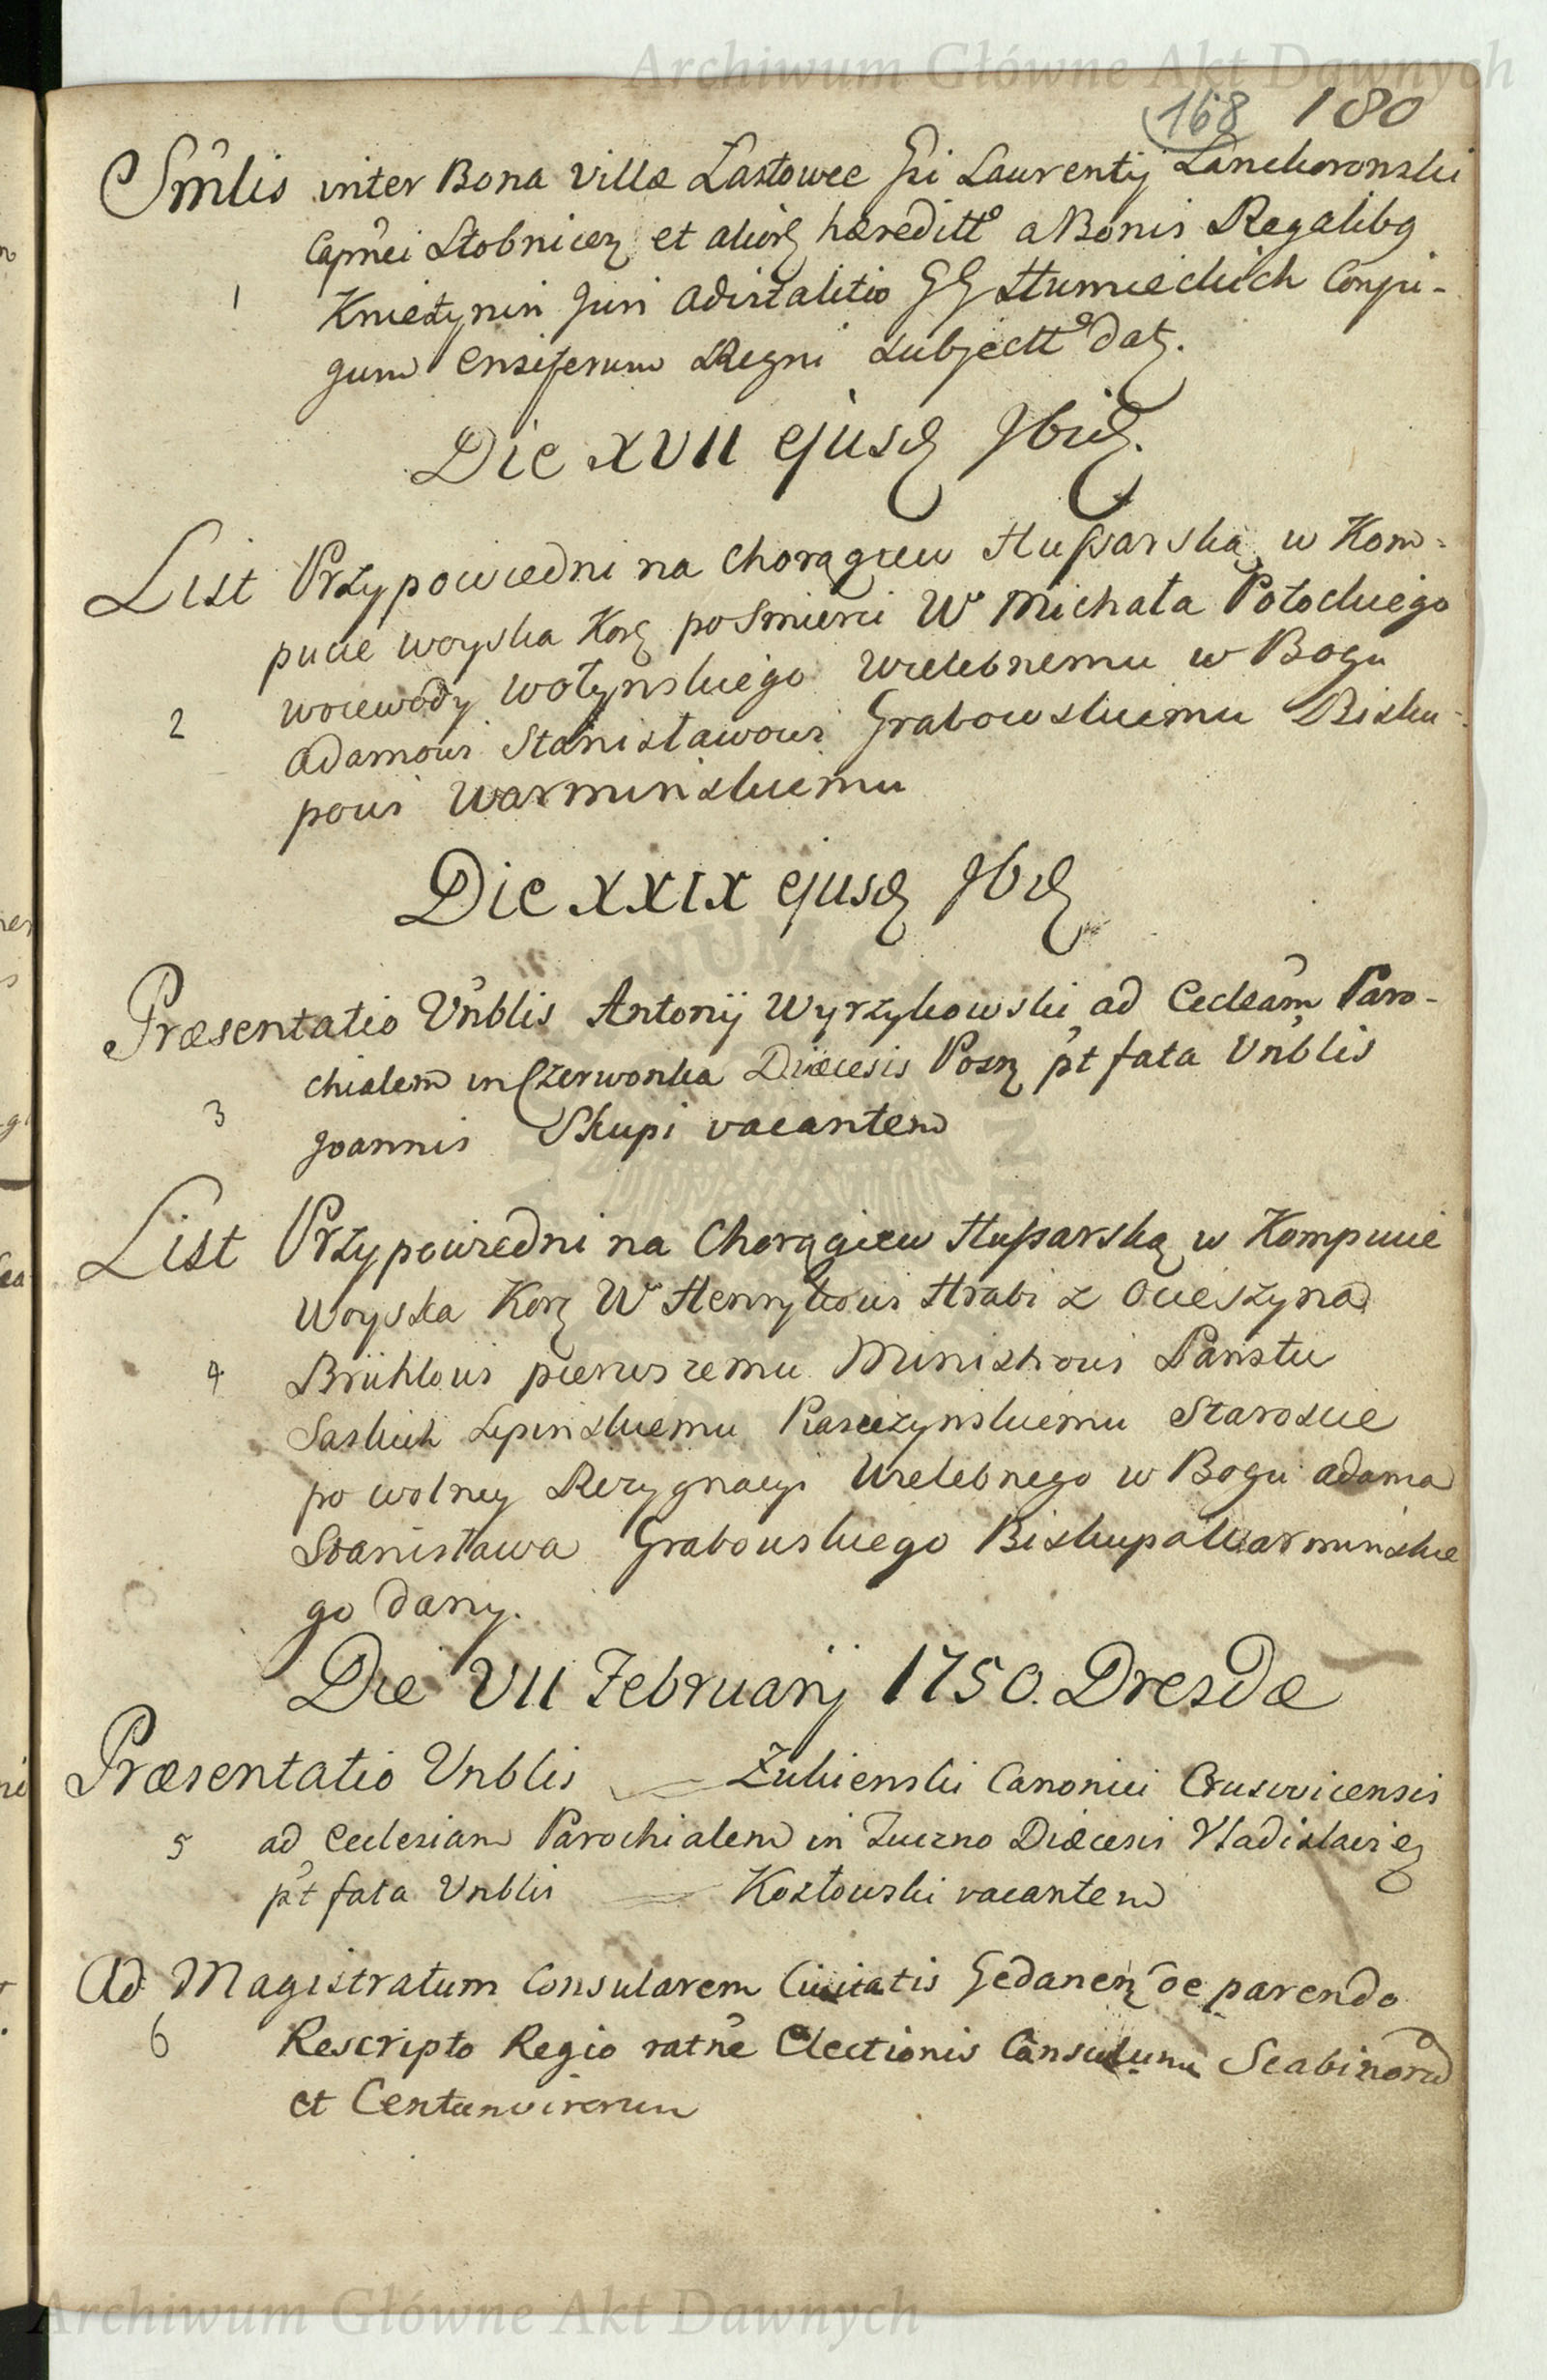 Archiwum Główne Akt Dawnych
168 180
Smlis inter Bona Villæ Lastowce Gsi Laurentij Lanckoronski
Capnei Stobnicen et alior hæreditt a Bonis Regalibq
1 Knieżynin Juri advitalitio GG Humieckich Conju-
gum Ensiferum Regni subjectt dat.
Die XVII ejusd Ibid.
List Przypowiedni na Chorągiew Hussarską w Kom-
pucie woyska Kor po smierci W Michała Potockiego
woiewody wołynskiego Wielebnemu w Bogu
2 Adamowi Stanisławowi Grabowskiemu Bisku-
powi Warminskiemu
Die XXIX ejusd Ibid
Præsentatio Vnblis Antonij Wyrzykowski ad Eccleam Paro-
chialem in Czerwonka Diæcesis Posn pt fata Vnblis
3 Joannis Skupi vacantem
List Przypowiedni na Chorągiew Hussarską w Kompucie
Woyska Kor W Henrykowi Hrabi z Ocieszyna
4 Brühlowi pierwszemu Ministrowi Panstw
Saskich Lipinskiemu Piaseczynskiemu Staroscie
po wolney Rezygnacyi Wielebnego w Bogu Adama
Stanisława Grabowskiego Biskupa Warminskie
go dany.
Die VII Februarij 1750. Dresdæ
Præsentatio Vnblis — Zukienski Canonici Crusvicensis
5 ad Ecclesiam Parochialem in Zuczno Diæcesis Vladislavien
pt fata Vnblis — Kozłowski vacantem
Ad Magistratum Consularem Civitatis Gedanen de parendo
6 Rescripto Regio ratne Electionis Consulum Scabinorum
et Centumvirorum
Archiwum Główne Akt Dawnych